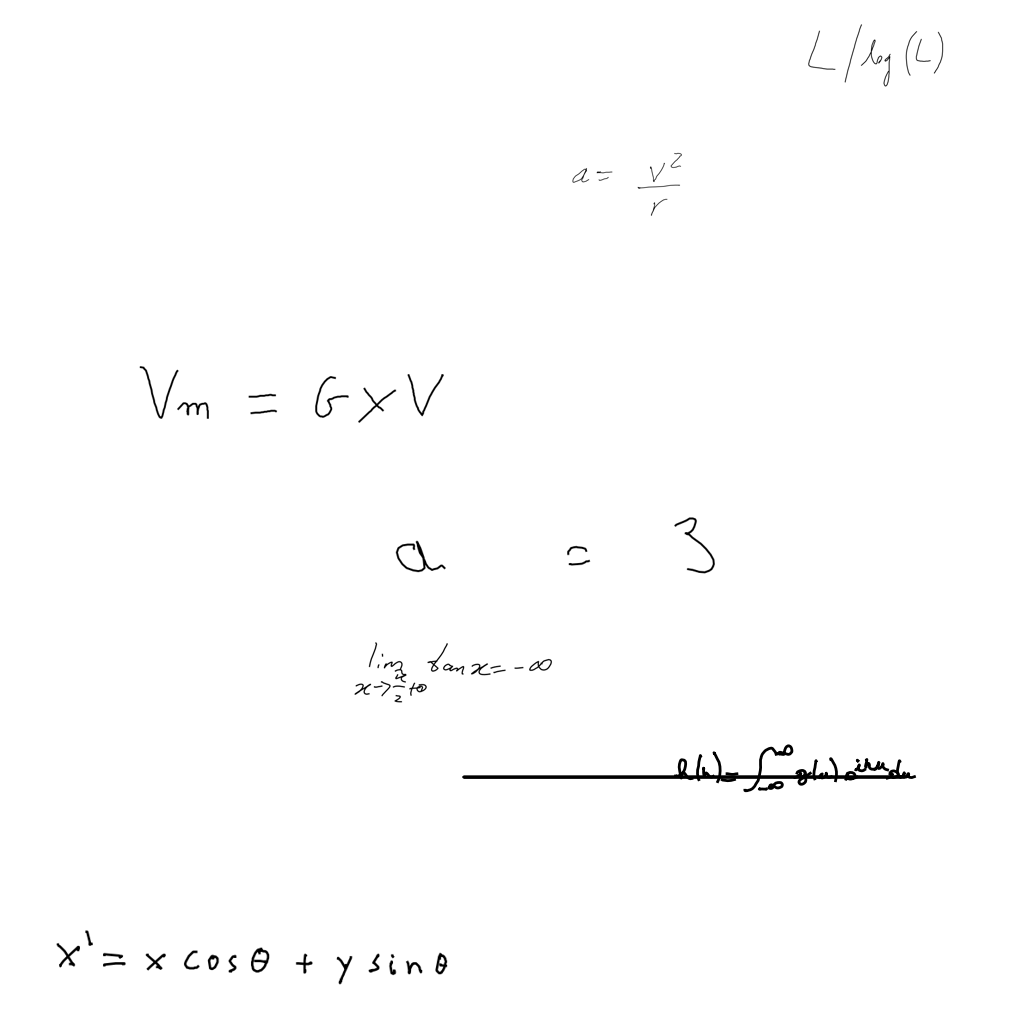 L/log(L)
a = v²/r
Vm = G×V
a = 3
lim x→π/2+0 tan x = -∞
h(r) = ∫_{-∞}^{∞} g(u) e^{iru} du
x' = x cosθ + y sinθ